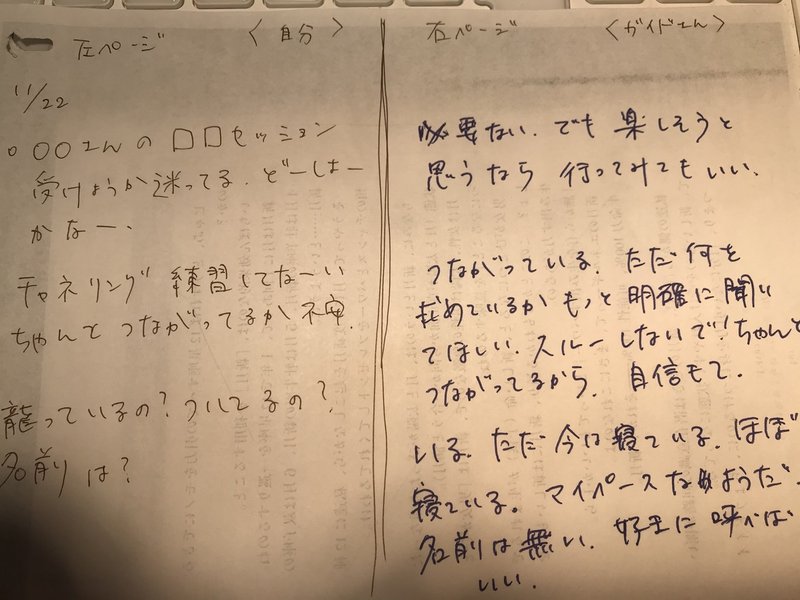 左ページ 〈自分〉
11/22
○○さんの□□セッション
受けようか迷ってる。どーしよー
かなー、
チャネリング 練習してなーい
ちゃんとつながってるか不安。
龍っているの?ついてるの?
名前は?
右ページ 〈ガイドさん〉
必要ない。でも楽しそうと
思うなら行ってみてもいい。
つながっている。ただ何を
求めているかもっと明確に聞い
てほしい。スルーしないで!ちゃんと
つながってるから。自信もて。
いる。ただ今は寝ている。ほぼ
寝ている。マイペースなようだ。
名前は無い。好きに呼べば
いい。